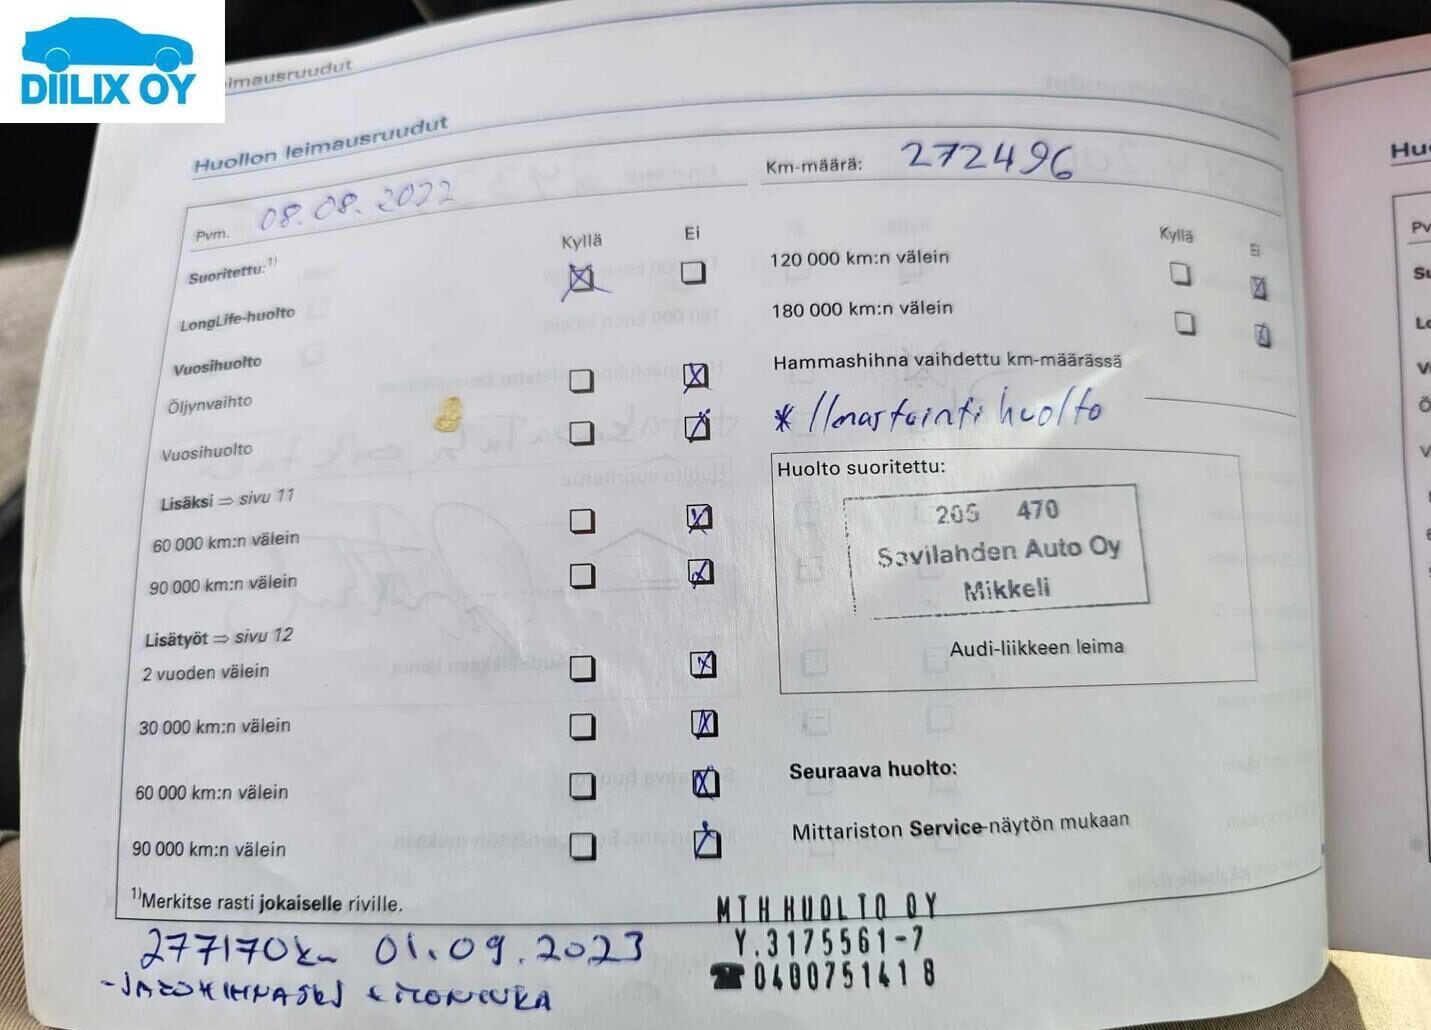 DIILIX OY
eimausruudut
Huollon leimausruudut
Pvm. 08.08.2022
Km-määrä: 272496
Suoritettu:1)
Kyllä Ei
LongLife-huolto
Vuosihuolto
Öljynvaihto
Vuosihuolto
Lisäksi ⇒ sivu 11
60 000 km:n välein
90 000 km:n välein
Lisätyöt ⇒ sivu 12
2 vuoden välein
30 000 km:n välein
60 000 km:n välein
90 000 km:n välein
1)Merkitse rasti jokaiselle riville.
Kyllä Ei
120 000 km:n välein
180 000 km:n välein
Hammashihna vaihdettu km-määrässä
* Ilmastointi huolto
Huolto suoritettu:
205 470
Savilahden Auto Oy
Mikkeli
Audi-liikkeen leima
Seuraava huolto:
Mittariston Service-näytön mukaan
277170km 01.09.2023
- JAKOHIHNASJ
MTH HUOLTO OY
Y.3175561-7
☎0400751418
Hu
Pv